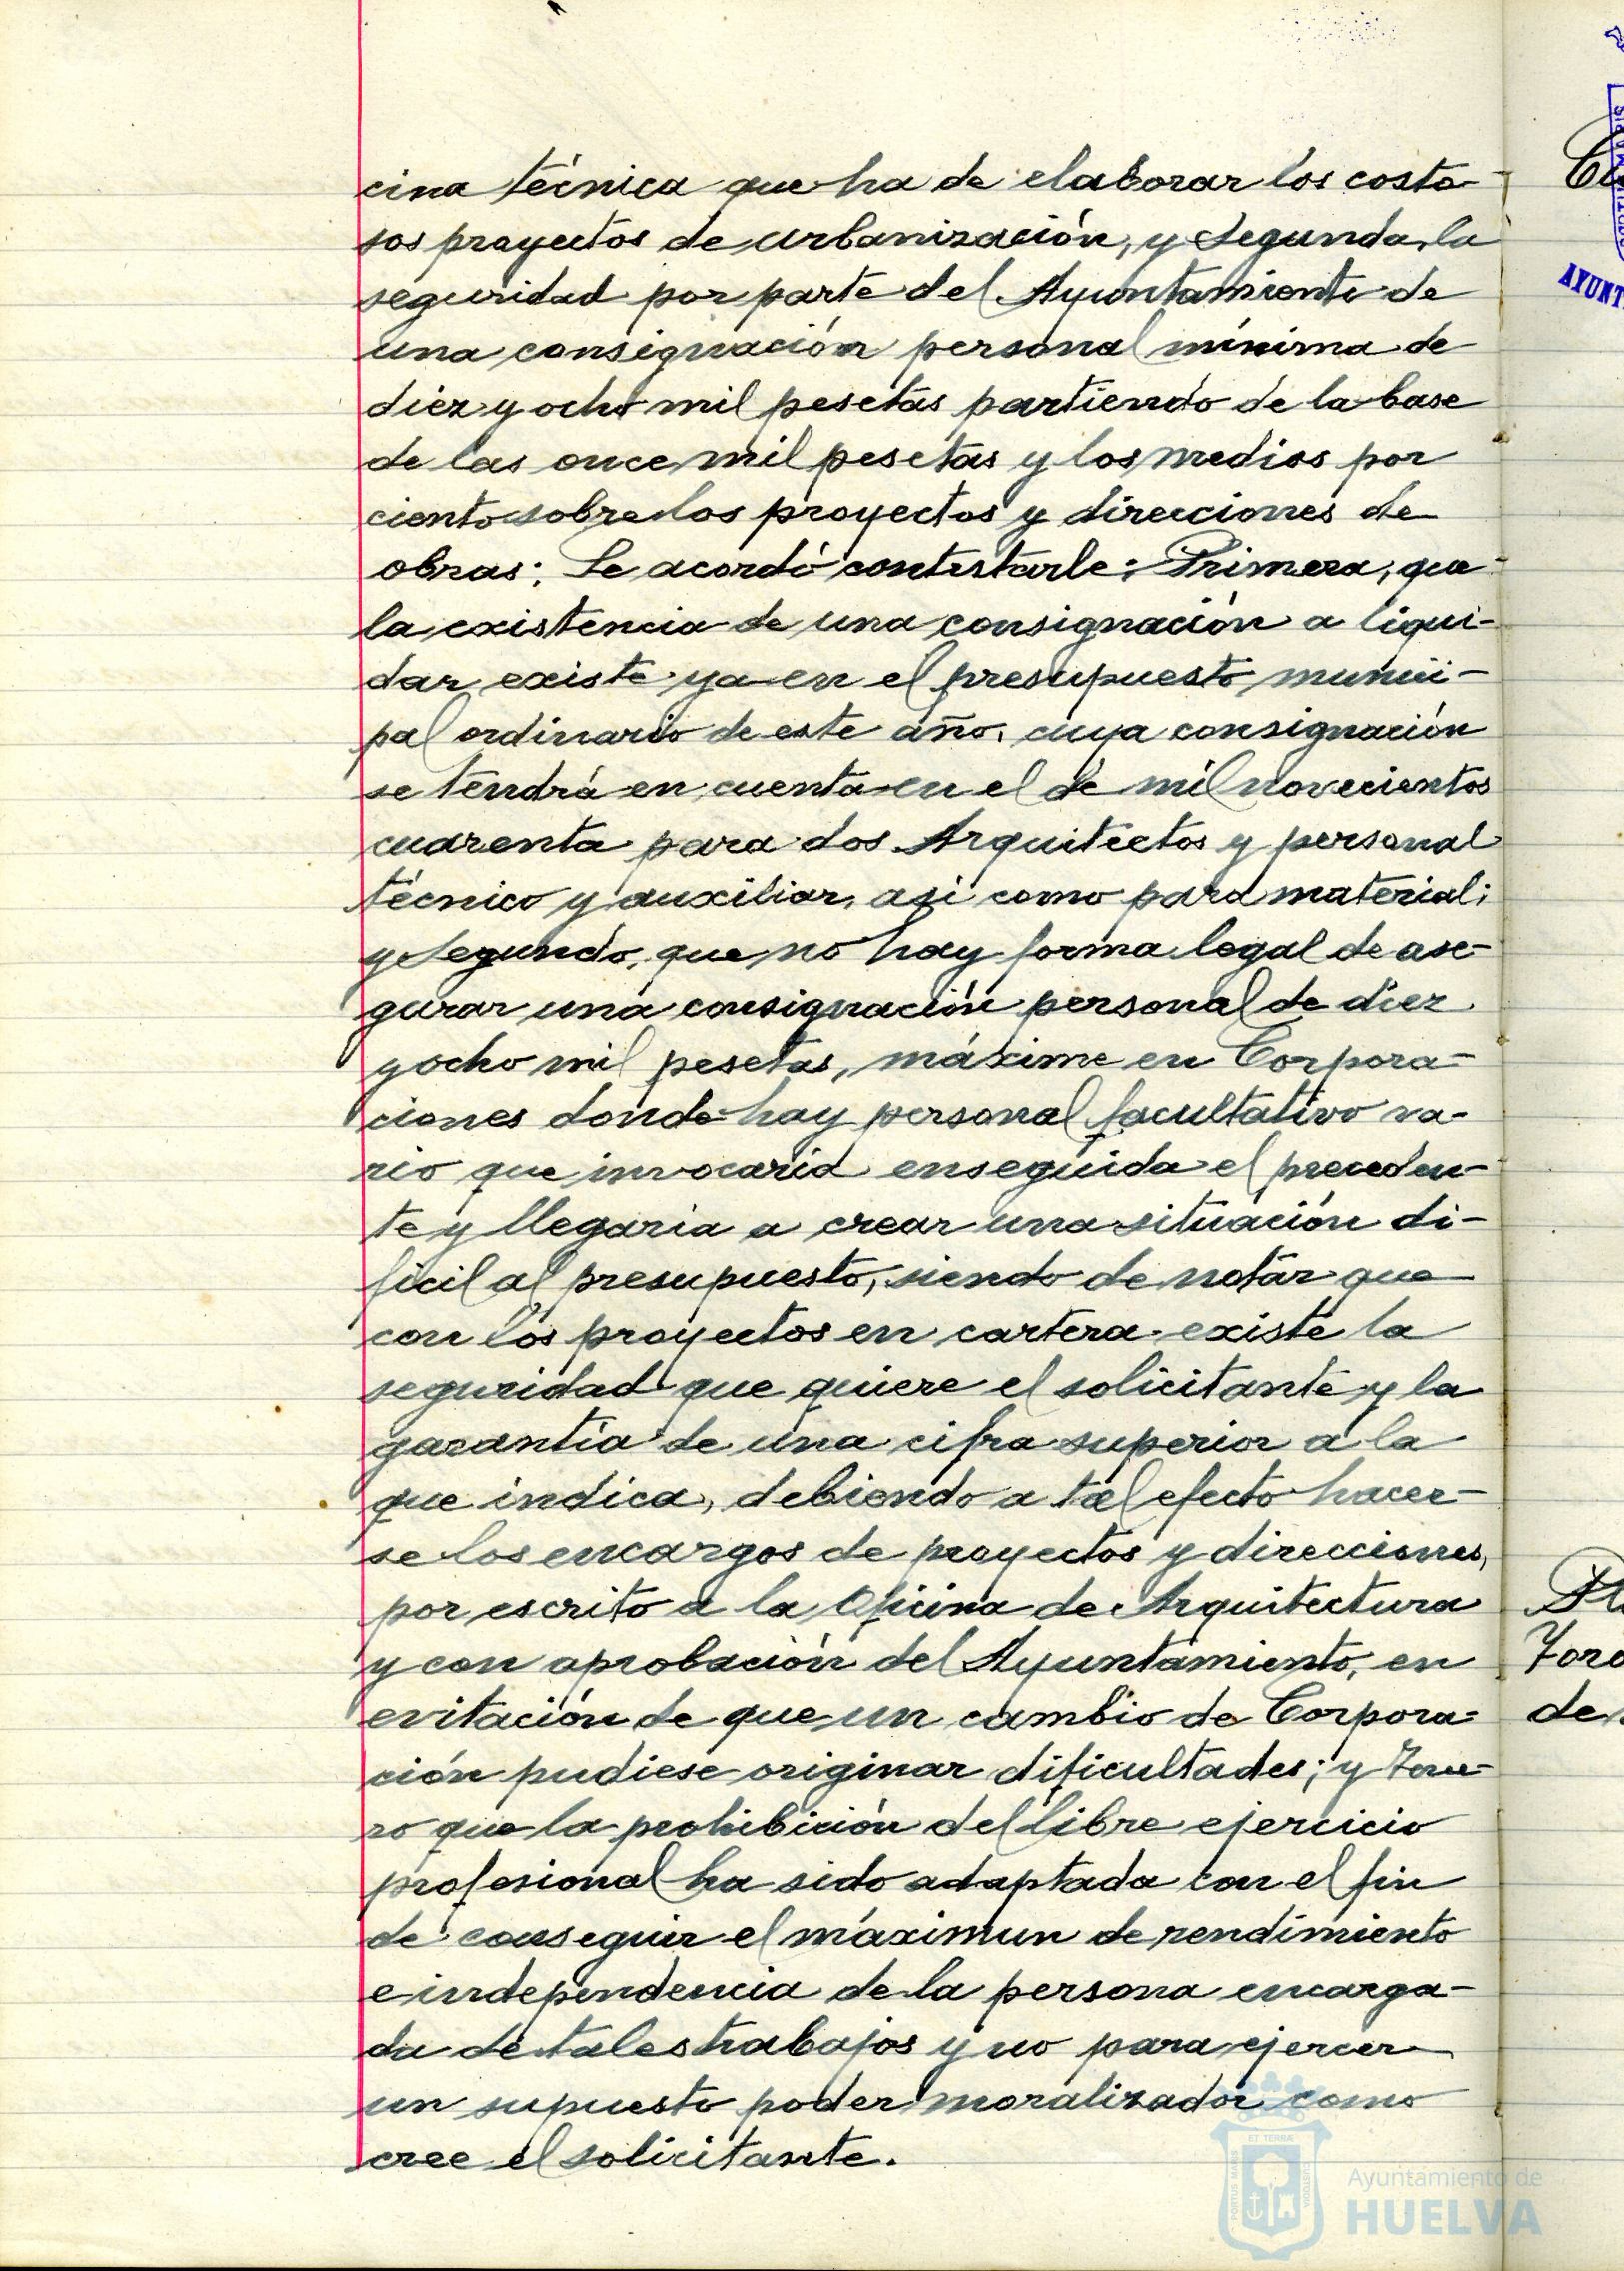 cina técnica que ha de elaborar los costo-
sos proyectos de urbanización, y Segunda, la
seguridad por parte del Ayuntamiento de
una consignación personal mínima de
diez y ocho mil pesetas partiendo de la base
de las once mil pesetas y los medios por
ciento sobre los proyectos y direcciones de
obras: Se acordó contestarle: Primera, que
la existencia de una consignación a liqui-
dar, existe ya en el presupuesto munici-
pal ordinario de este año, cuya consignación
se tendrá en cuenta en el de mil novecientos
cuarenta para dos Arquitectos y personal
técnico y auxiliar, asi como para material;
y Segundo, que no hay forma legal de ase-
gurar una consignación personal de diez
y ocho mil pesetas, máxime en Corpora-
ciones donde hay personal facultativo va-
rio que invocaría enseguida el preceden-
te y llegaria a crear una situación di-
ficil al presupuesto, siendo de notar que
con los proyectos en cartera existe la
seguridad que quiere el solicitante y la
garantía de una cifra superior a la
que indica, debiendo a tal efecto hacer-
se los encargos de proyectos y direcciones,
por escrito a la Oficina de Arquitectura
y con aprobación del Ayuntamiento, en
evitación de que un cambio de Corpora-
ción pudiese originar dificultades; y Terce-
ro que la prohibición del libre ejercicio
profesional ha sido adaptada con el fin
de conseguir el máximun de rendimiento
e independencia de la persona encarga-
da de tales trabajos y no para ejercer
un supuesto poder moralizador como
cree el solicitante.
AYUNT
de
Ayuntamiento de
HUELVA